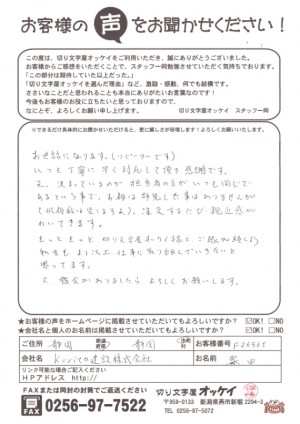 お客様の声をお聞かせください!
この度は、切り文字屋オッケイをご利用いただき、誠にありがとうございました。
お客様からご感想をいただくことで、スタッフ一同勉強させていただく気持ちであります。
「この部分は期待していた以上だった。」
「切り文字屋オッケイを選んだ理由」など、激励・感動、何でも結構です。
ささいなことだと思われることも本当にありがたいお言葉なのです!
今後もお客様のお役に立ちたいと思っておりますので、
なにとぞ、よろしくお願い申し上げます。 切り文字屋オッケイ スタッフ一同
※できるだけ具体的にお聞かせいただけますと、更に嬉しさが倍増します!よろしくお願いいたします。
お世話になります。(リピーターです)
いつも丁寧に早く対応して頂き感謝です。
又、決まっているのか担当者の方がいつも同じで
あるという事で、お顔は拝見した事はありませんが
注文するたび親近感が
わいてきます。
もっともっと切り文字屋オッケイ様に
思ってます。
又、機会がありましたらよろしくお願いします。
★お客様の声をホームページに掲載させていただいてもよろしいですか? ☑OK! □NO
★会社名と個人のお名前は掲載させていただいてもよろしいですか? ☑OK! □NO
ご住所 静岡 都道府県 静岡 市町村 お客様番号 F26565
会社名 建設株式会社 お名前
リンク可能な場合ご記入ください
HPアドレス http://
FAXまたは同封の封筒でご返送ください
FAX 0256-97-7522
切り文字屋 オッケイ
〒959-0133 新潟県燕市新堀 2294-3
TEL 0256-97-5072